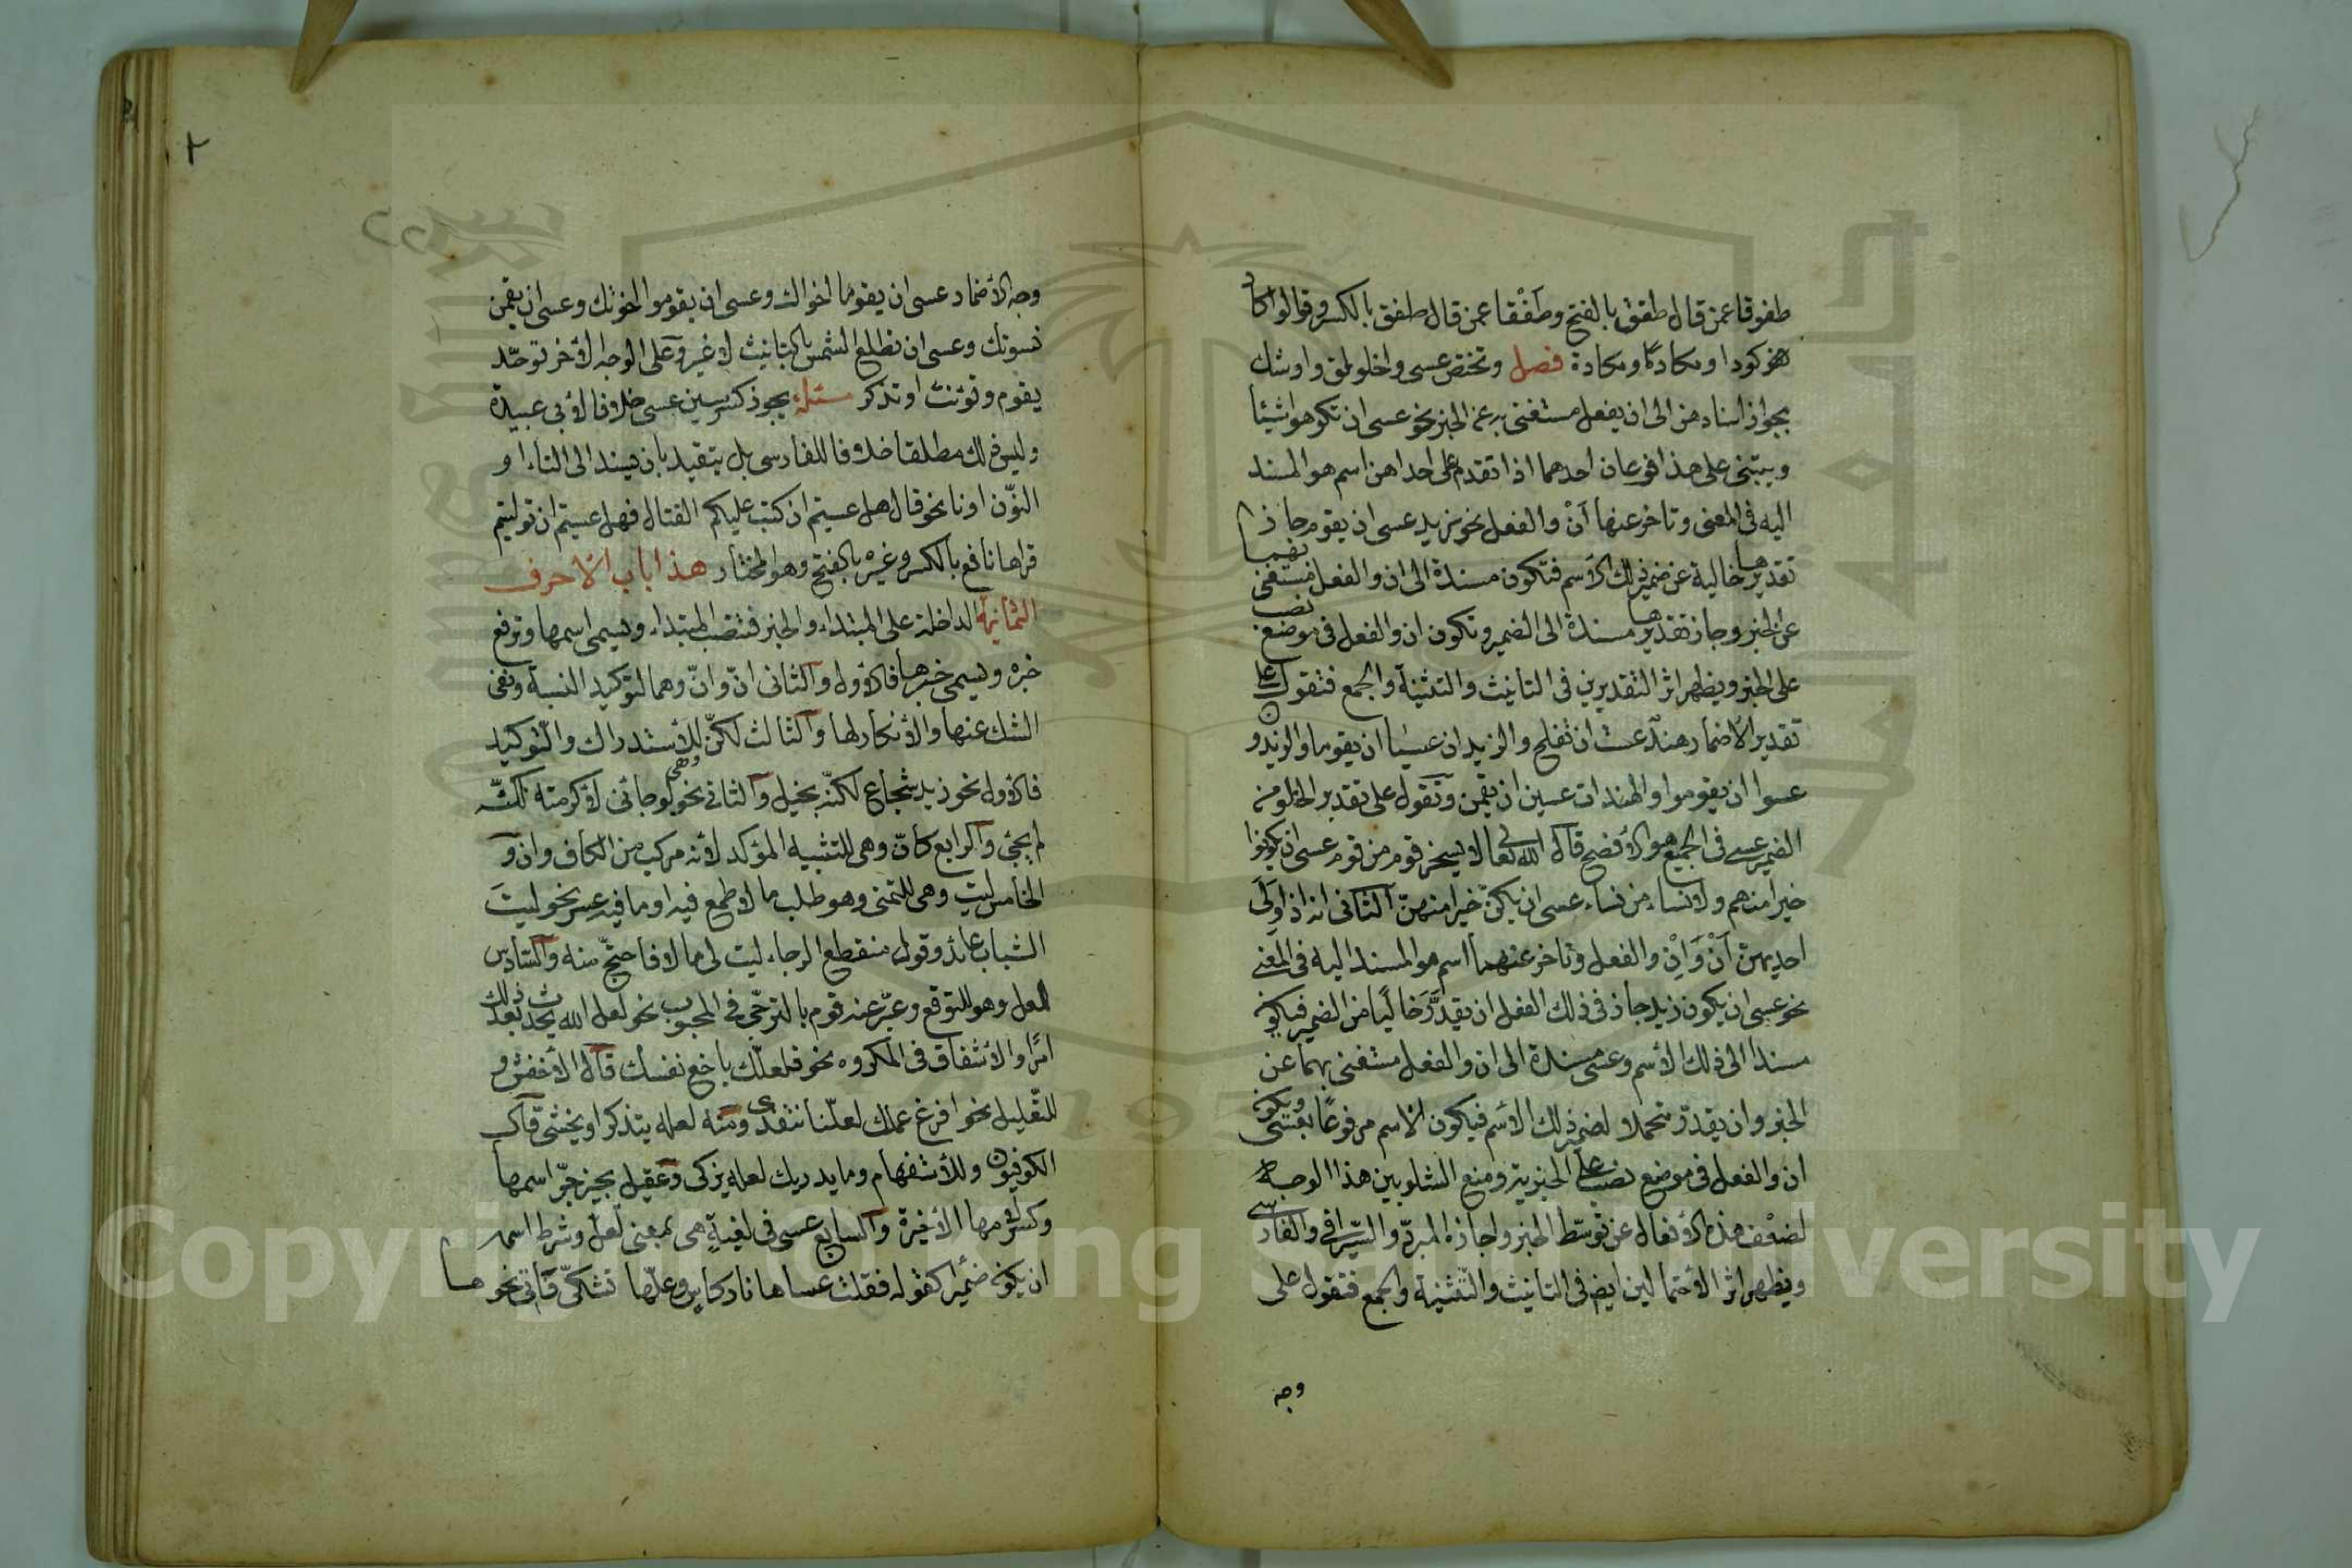 طفوقا عمن قال طفق بالفتح وطفقا عمن قال طفق بالكسر وقالوا كاد
كودا ومكادا ومكادة فصل وتختص عسى واخلولق واوشك
بجواز اسنادهن الى ان يفعل مستغنى به عن الخبر نحو عسى ان تكرهوا شيئا
ويبتنى على هذا فرعان احدهما اذا تقدم على احداهن اسم هو المسند
اليه فى المعنى وتاخر عنها أنْ والفعل نحو زيد عسى ان يقوم جاز
تقديرها خالية عن ضمير ذلك الاسم فتكون مسندة الى ان والفعل مستغنى بهما
عن الخبر وجاز تقديرها مسندة الى الضمير وتكون ان والفعل فى موضع نصب
على الخبر ويظهر اثر التقديرين فى التانيث والتثنية والجمع فتقول على
تقدير الاضمار هند عست ان تفلح والزيدان عسيا ان يقوما والزيدون
عسوا ان يقوموا والهندات عسين ان يقمن وتقول على تقدير الخلو من
الضمير عسى فى الجميع هو الافصح قال الله تعالى لا يسخر قوم من قوم عسى ان يكونوا
خيرا منهم ولا نساء من نساء عسى ان يكنّ خيرا منهنّ الثانى انه اذا ولى
احديهن أنْ والفعل وتاخر عنهما اسم هو المسند اليه فى المعنى
نحو عسى ان يكون زيد جاز فى ذلك الفعل ان يقدّر خاليًا من الضمير فيكون
مسندا الى ذلك الاسم وعسى مسندة الى ان والفعل مستغنى بهما عن
الخبر وان يقدّر متحملا لضمير ذلك الاسم فيكون الاسم مرفوعًا بعسى ويكون
ان والفعل فى موضع نصب على الخبرية ومنع الشلوبين هذا الوجه
لضعف هذه الافعال عن توسّط الخبر واجازه المبرّد والسّيرافى والفارسى
ويظهر اثر الاحتمالين ايضا فى التانيث والتّثنية والجمع فتقول على
وجه
٢
وجه الأضمار عسى ان يقوما اخواك وعسى ان يقوموا اخوتك وعسى ان يقمن
نسوتك وعسى ان تطلع الشمس بالتانيث لا غير وعلى الوجه الأخر توحّد
يقوم وتؤنث او تذكر مسئله يجوز كسر سين عسى خلافا لأبى عبيدة
وليس ذلك مطلقا خلافا للفارسى بل يتقيد بان يسند الى التاء او
النّون او نا نحو قال هل عسيتم ان كتب عليكم القتال فهل عسيتم ان توليتم
قراها نافع بالكسر وغيره بالفتح وهو المختار هذا باب الاحرف
الثمانية الداخلة على المبتداء والخبر فتنصب المبتداء ويسمى اسمها وترفع
خبره ويسمى خبرها فالاول والثانى انّ وأنّ وهما لتوكيد النسبة ونفى
الشك عنها والأنكار لها والثالث لكنّ للأستدراك والتّوكيد
فالاول نحو زيد شجاع لكنّه بخيل والثانى نحو لو جاءنى لاكرمته لكنّه
لم يجئ والرابع كانّ وهى للتشبيه المؤكد لأنه مركب من الكاف وان و
الخامس ليت وهى للتمنى وهو طلب ما لا طمع فيه او ما فيه عسر نحو ليتَ
الشباب عائد وقول منقطع الرجاء ليت لى مالا فاحجّ منه والسّادس
لعل وهو للتوقع وعبّر عنه قوم بالترجّى فى المحبوب نحو لعل الله يحدث بعد ذلك
امرًا والأشفاق فى المكروه نحو فلعلّك باخع نفسك قال الأخفش و
للتّعليل نحو افرغ عملك لعلّنا نتغدى ومنه لعله يتذكر او يخشى قال
الكوفيون وللأستفهام وما يدريك لعله يزكى وعقيل يجيز جرّ اسمها
وكسر لامها الأخيرة والسابع عسى فى لغيةٍ هى بمعنى لعلّ وشرط اسمها
ان يكون ضميرا كقوله فقلت عساها نار كاس وعلّها تشكّى فاتى نحوها